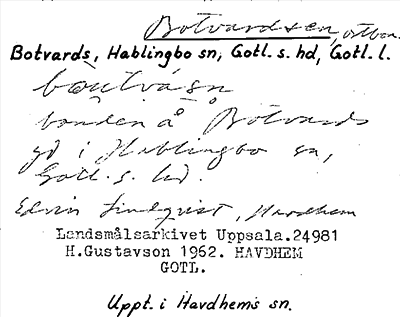 Botvardsen,
Botvards, Hablingbo sn, Gotl. s. hd, Gotl. l.
bonden å Botvards
gd i Hablingbo sn,
Gotl. s. hd.
Edvin Lindqvist, Havdhem
Landsmålsarkivet Uppsala.24981
H.Gustavson 1962. HAVDHEM
GOTL.
Uppt. i Havdhems sn.